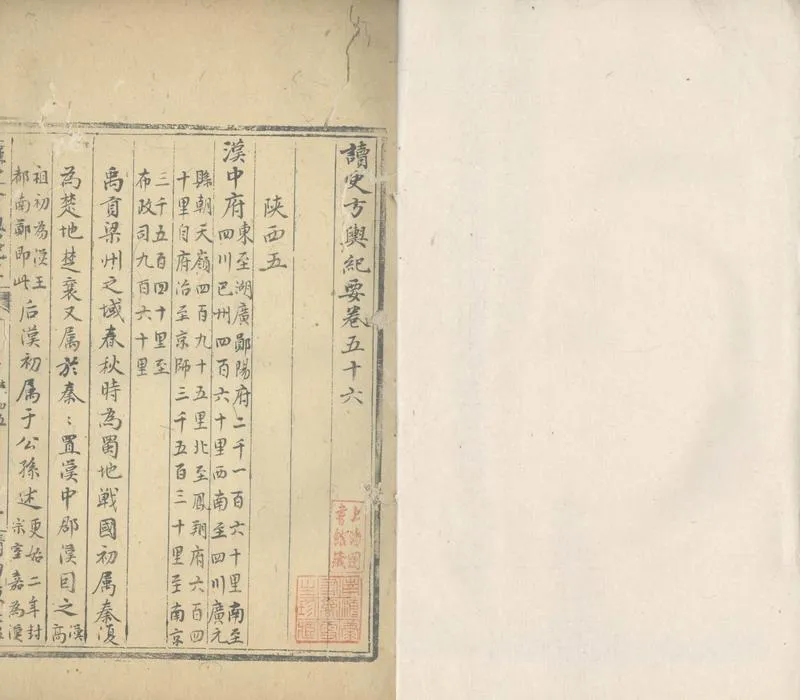 讀史方輿紀要卷五十六
陝西五
漢中府東至湖廣鄖陽府二千一百六十里南至
四川巴州四百六十里西南至四川廣元
縣朝天嶺四百九十五里北至鳳翔府六百四
十里自府治至京師三千五百三十里至南京
三千五百四十里至
布政司九百六十里
禹貢梁州之域春秋時為蜀地戰國初属秦後
為楚地楚衰又属於秦:置漢中郡漢因之漢高
祖初為漢王
都南鄭即此后漢初属于公孫述更始二年封
宗室嘉為漢
上海圖
書館藏